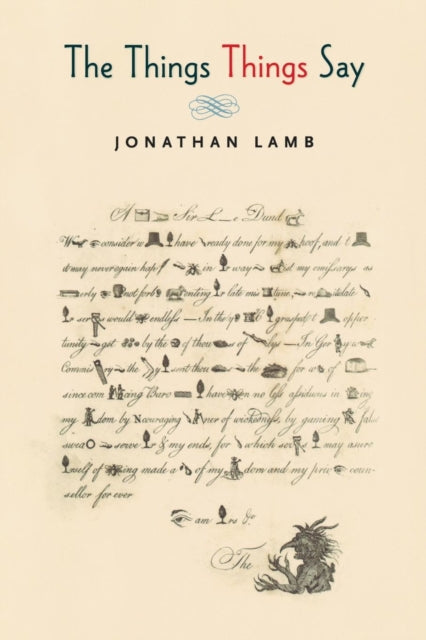 The Things Things Say
JONATHAN LAMB
A Sir L e Dund
consider w have ready done for my hoof, and t
it may never again hap in r way st my emissarys as
erly not forb renting r late mis tune, re itulate
r ser would endless In the y I grasp'd t oppor
tunity get by the of thou s of ys In Ger y a
Commis ry the I sent thou the for a of
since com cing Baro have n no less assiduus in ing
my dom by Ncouraging ner of wickedness, by gaming false
swea serve r & my ends, for which ser I may assure
rself of ing made a of my dom and my priv coun-
sellor for ever
am rs &c
The